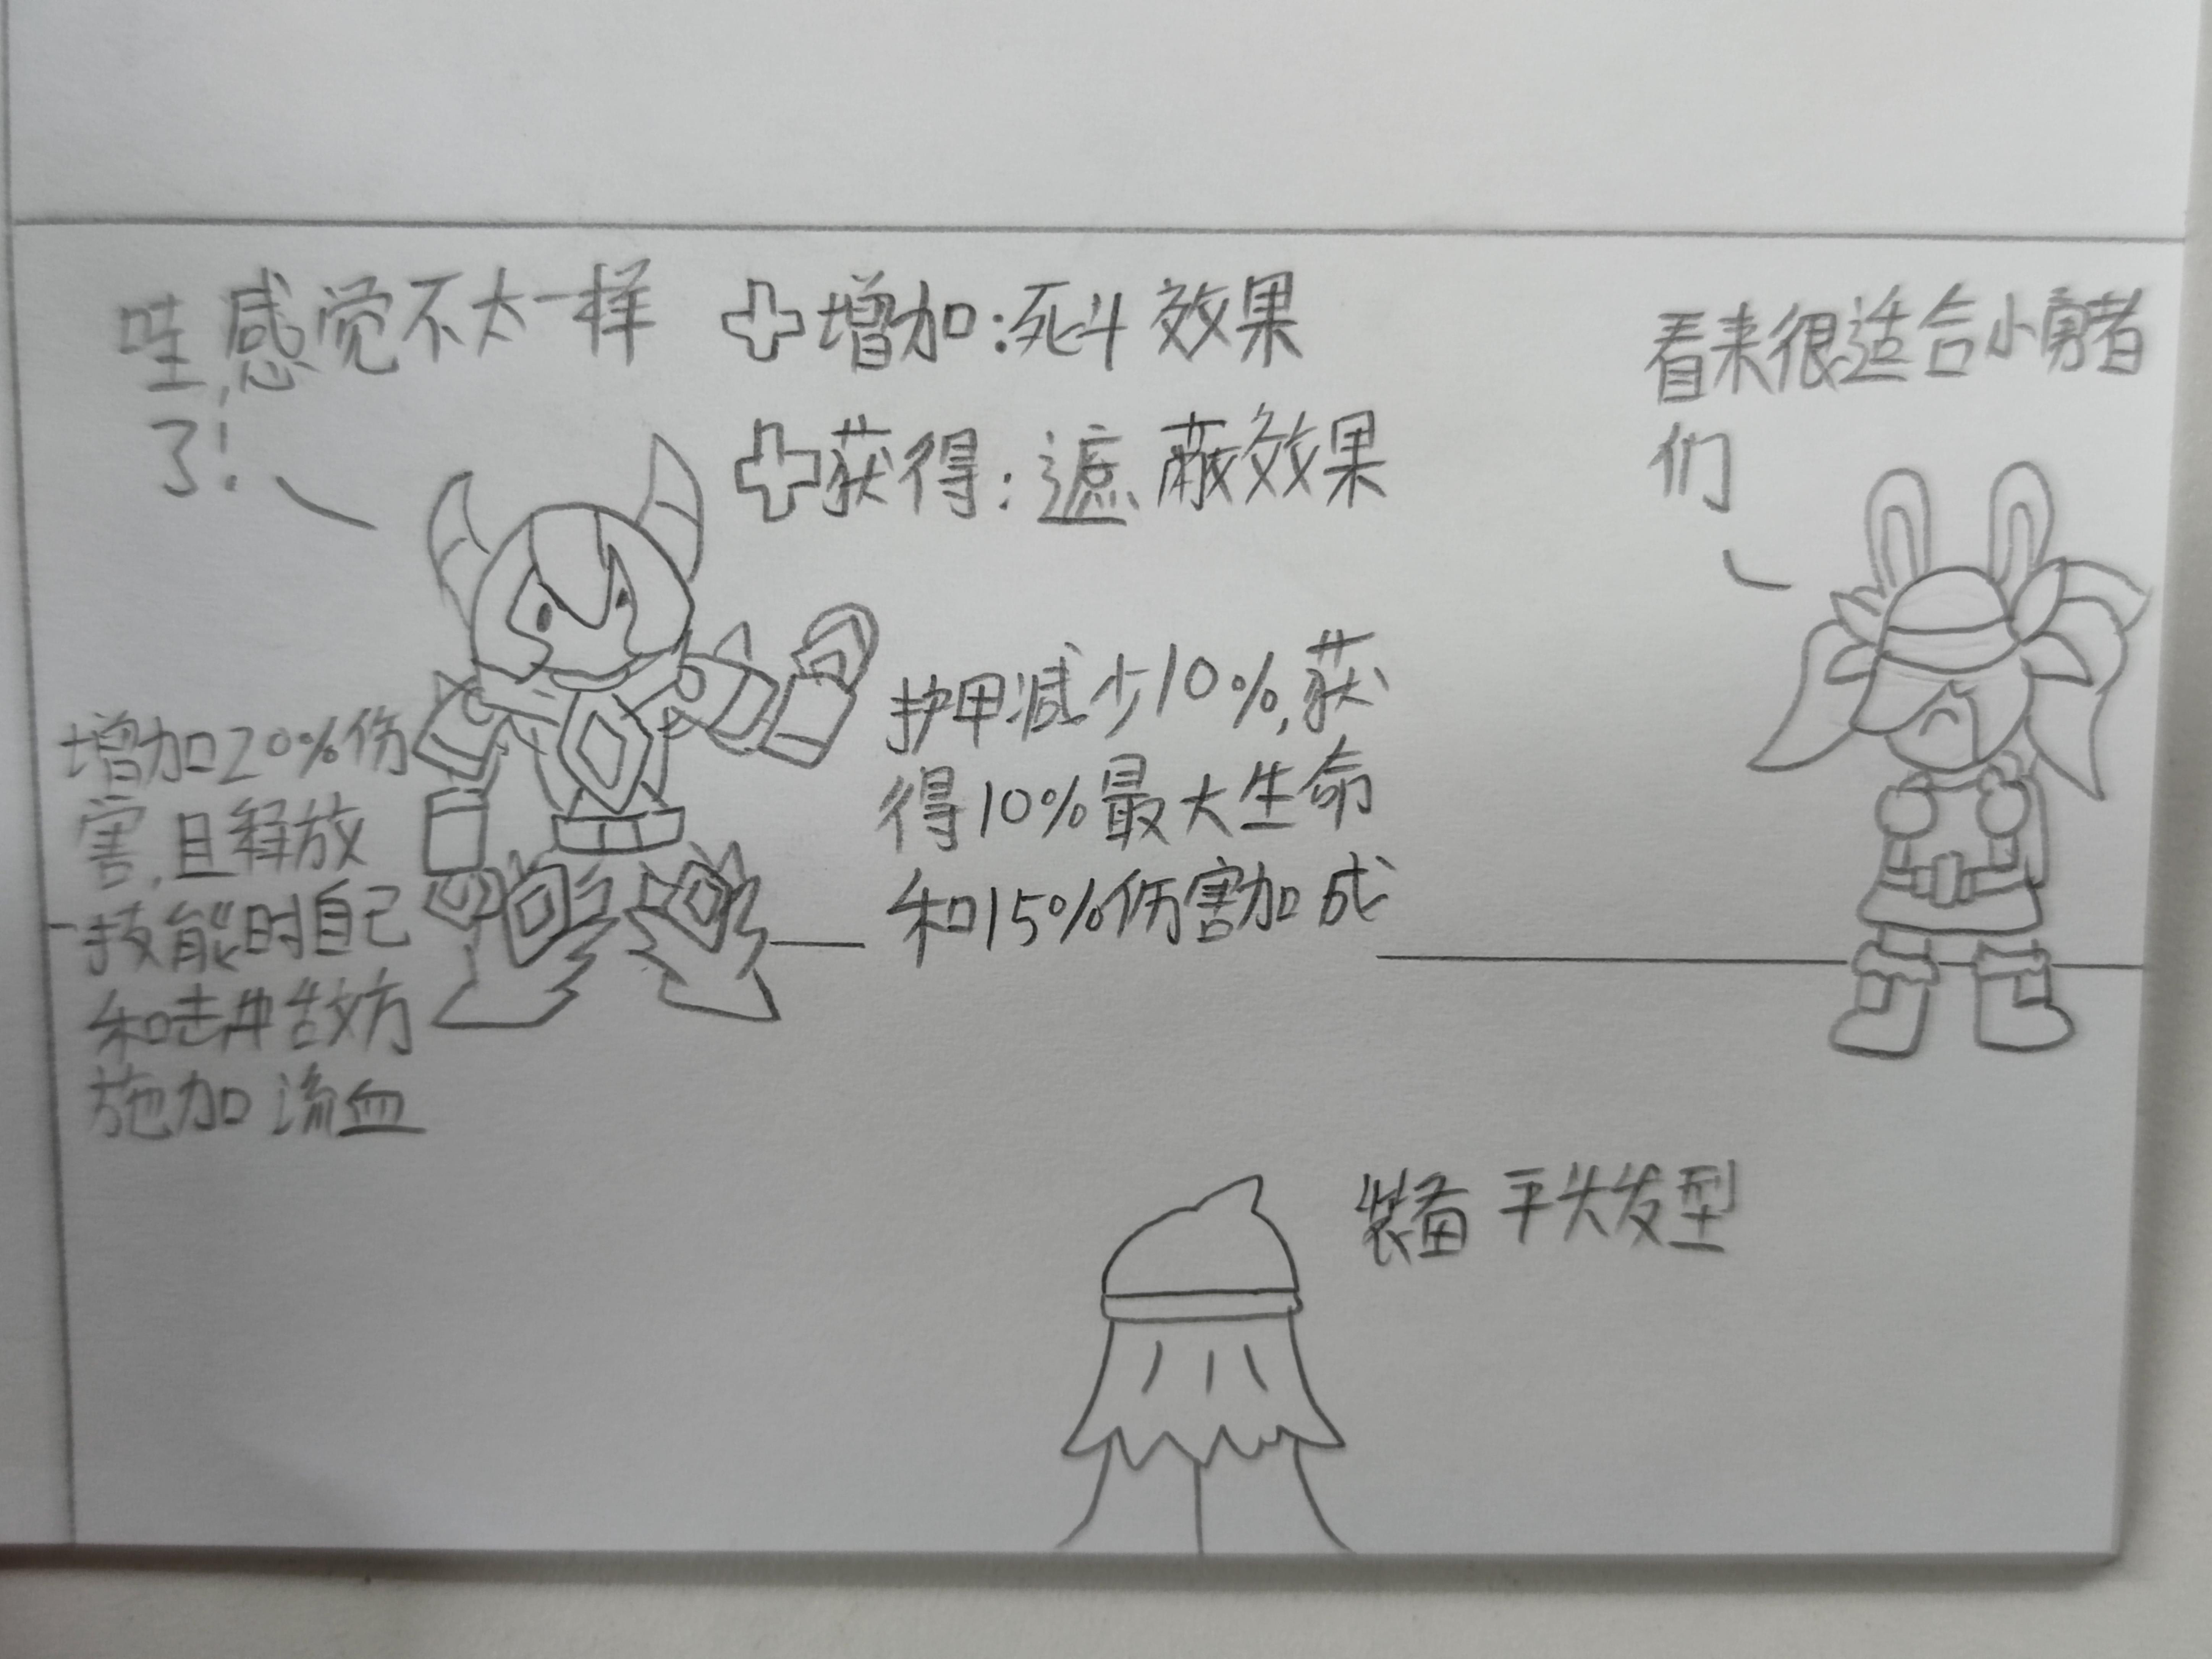 哇,感觉不太一样
了!
增加:死斗效果
获得:遮蔽效果
看来很适合小勇者
们
增加20%伤
害,且释放
技能时自己
和 敌方
施加 流血
护甲减少10%,获
得10%最大生命
和15%伤害加成
装备 平头发型